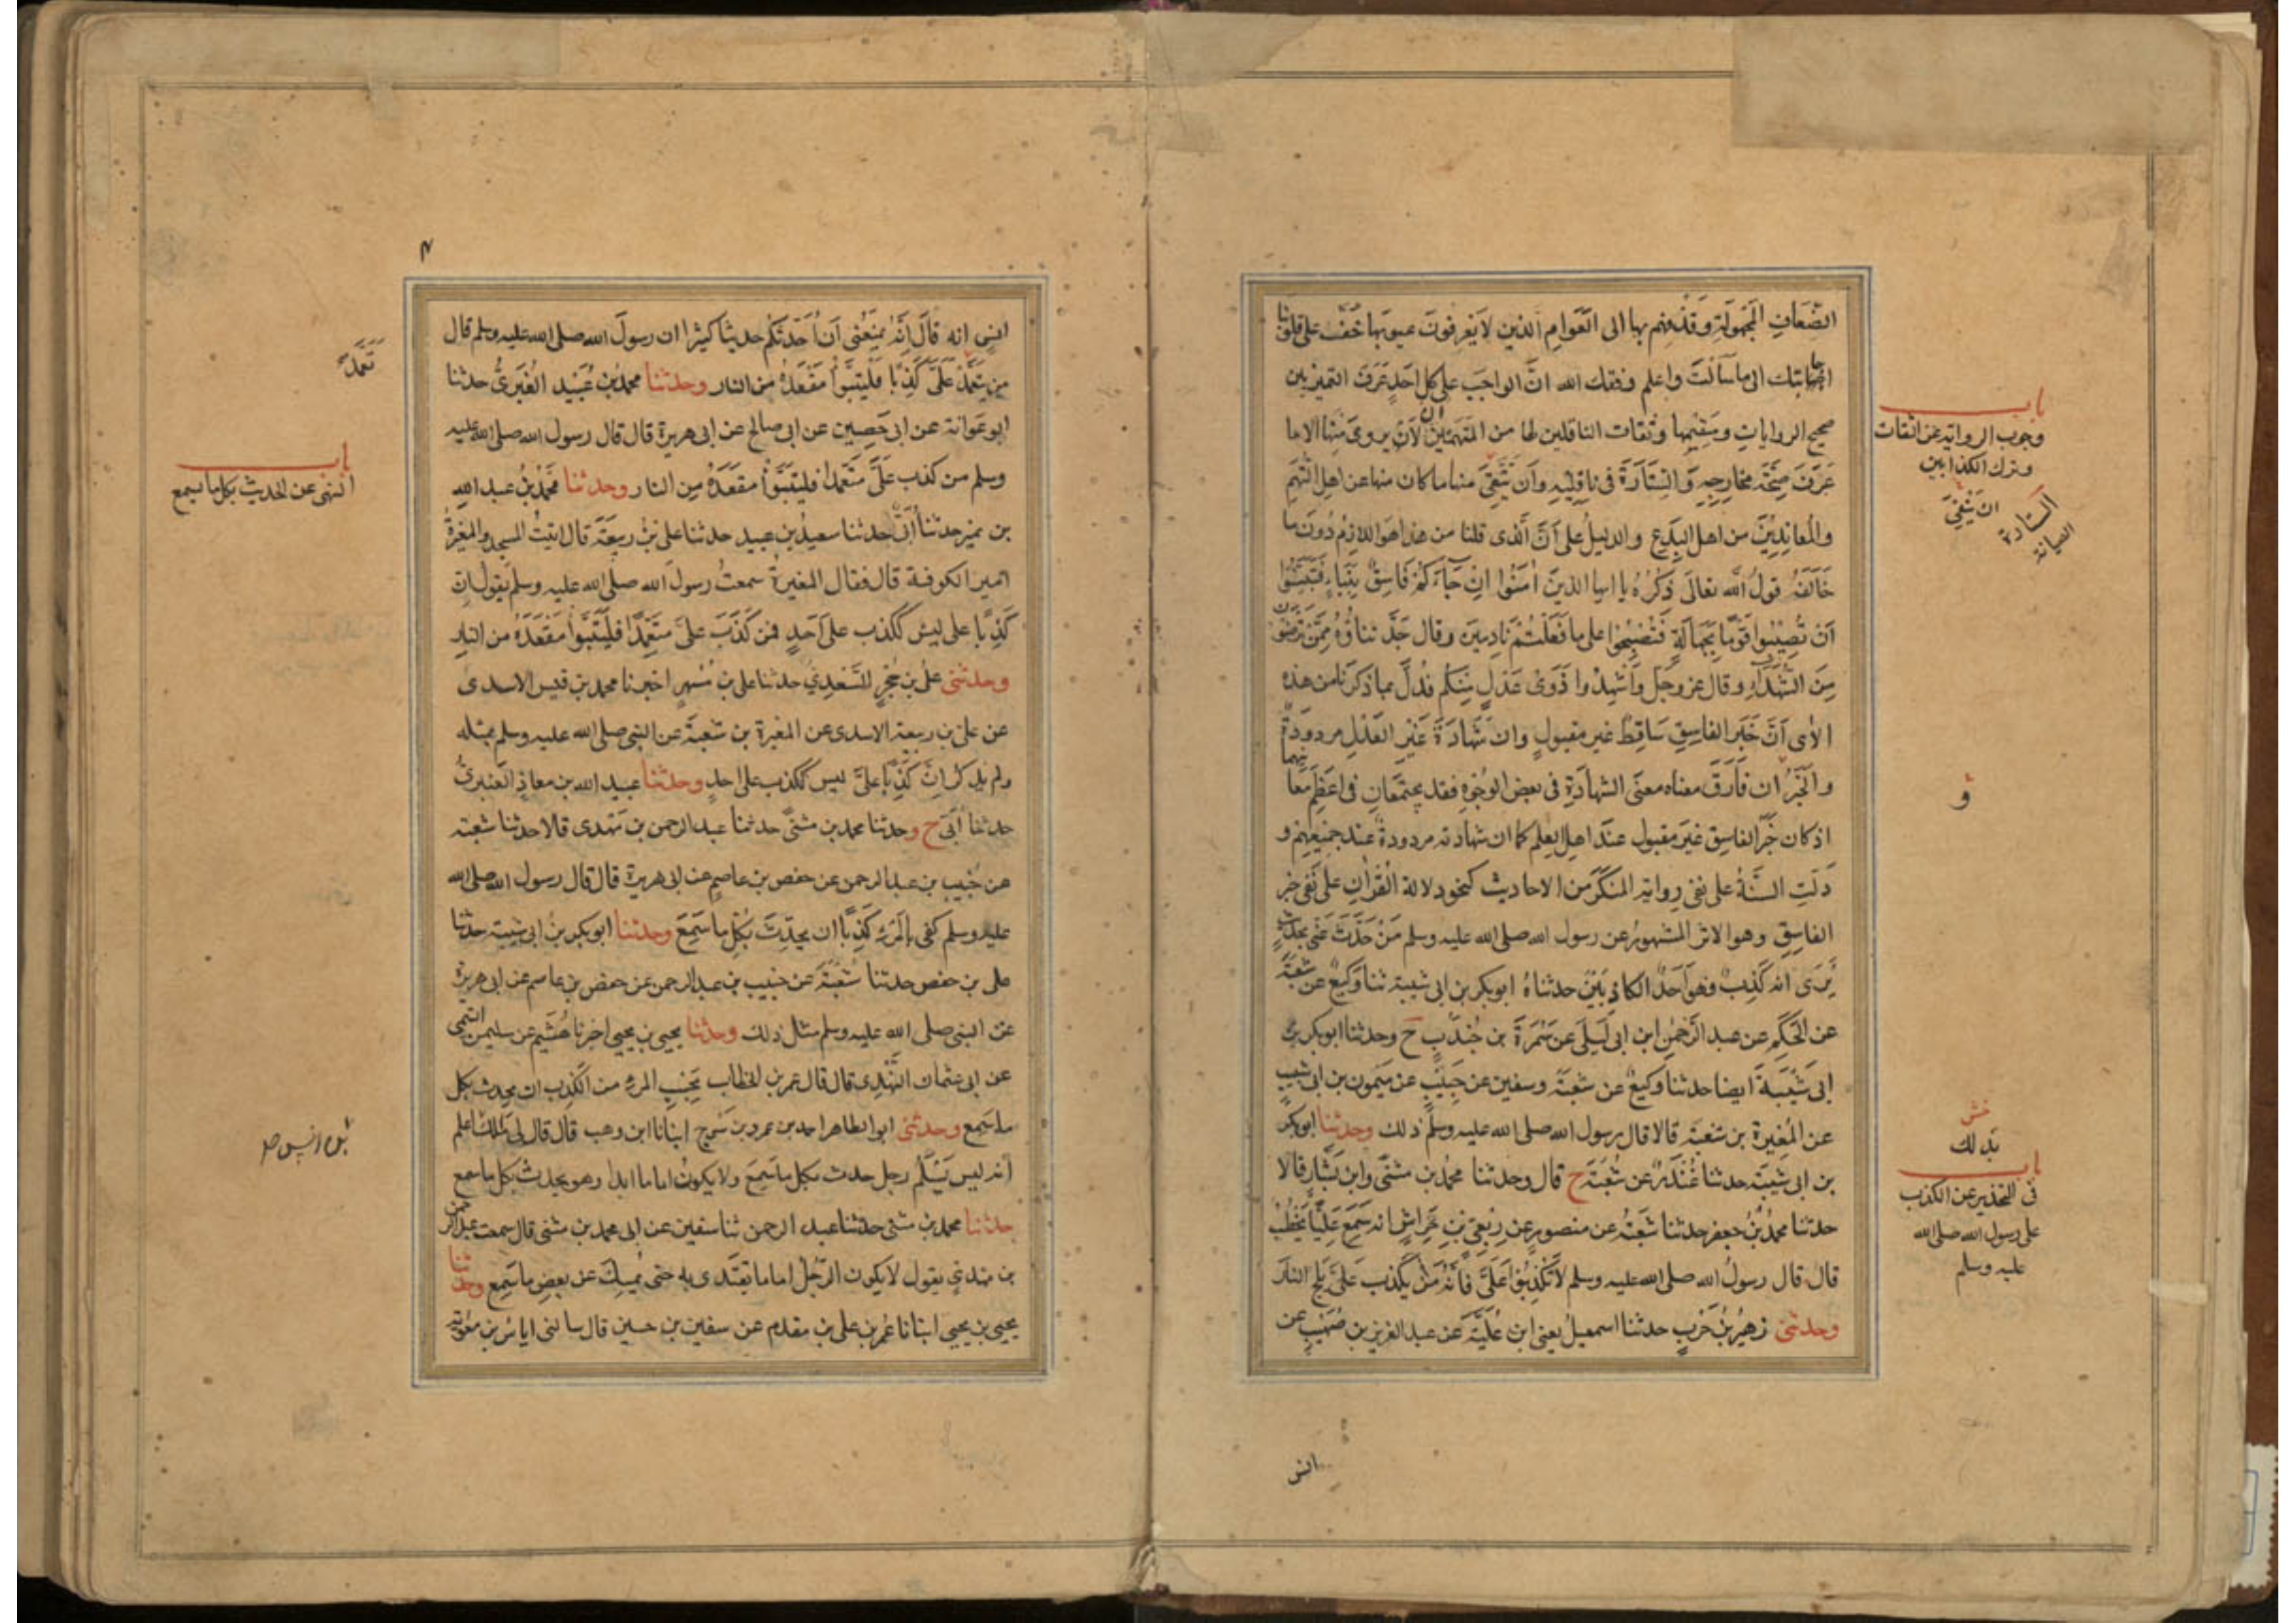 الضعاف المجهولة وقذفهم بها الى العوام الذين لا يعرفون عيوبها خف على قلوبنا
اجابتك الى ما سالت واعلم وفقك الله ان الواجب على كل احد عرف التمييز بين
صحيح الروايات وسقيمها وثقات الناقلين لها من المتهمين ان لا يروى منها الا ما
عرف صحة مخارجه والستارة فى ناقليه وان يتقى منها ما كان منها عن اهل التهم
والمعاندين من اهل البدع والدليل على ان الذى قلنا من هذا هو اللازم دون ما
خالفه قول الله تعالى ذكره يا ايها الذين امنوا ان جاءكم فاسق بنباء فتبينوا
ان تصيبوا قوما بجهالة فتصبحوا على ما فعلتم نادمين وقال جل ثناؤه ممن ترضون
من الشهداء وقال عز وجل واشهدوا ذوى عدل منكم فدل بما ذكرنا من هذه
الاى ان خبر الفاسق ساقط غير مقبول وان شهادة غير العدل مردودة
والخبر ان فارق معناه معنى الشهادة فى بعض الوجوه فقد يجتمعان فى اعظم معانيهما
اذ كان خبر الفاسق غير مقبول عند اهل العلم كما ان شهادته مردودة عند جميعهم و
دلت السنة على نفى رواية المنكر من الاحاديث كنحو دلالة القران على نفى خبر
الفاسق وهو الاثر المشهور عن رسول الله صلى الله عليه وسلم من حدث عنى بحديث
يرى انه كذب فهو احد الكاذبين حدثناه ابوبكر بن ابى شيبة ثنا وكيع عن شعبة
عن الحكم عن عبد الرحمن ابن ابى ليلى عن سمرة بن جندب ح وحدثنا ابوبكر بن
ابى شيبة ايضا حدثنا وكيع عن شعبة وسفين عن حبيب عن ميمون بن ابى شبيب
عن المغيرة بن شعبة قالا قال رسول الله صلى الله عليه وسلم ذلك وحدثنا ابوبكر
بن ابى شيبة حدثنا غندر عن شعبة ح قال وحدثنا محمد بن مثنى وابن بشار قالا
حدثنا محمد بن جعفر حدثنا شعبة عن منصور عن ربعى بن حراش انه سمع عليا يخطب
قال قال رسول الله صلى الله عليه وسلم لا تكذبوا على فانه من يكذب على يلج النار
وحدثنى زهير بن حرب حدثنا اسمعيل يعنى ابن علية عن عبد العزيز بن صهيب عن
باب
وجوب الرواية عن الثقات
وترك الكذابين
ان يتقى
الستارة
الصيانة
و
بذلك
باب
فى التحذير عن الكذب
على رسول الله صلى الله
عليه وسلم
انس
انس انه قال انه يمنعنى ان احدثكم حديثا كثيرا ان رسول الله صلى الله عليه وسلم قال
من يتعمد على كذبا فليتبوأ مقعده من النار وحدثنا محمد بن عبيد الغبرى حدثنا
ابو عوانة عن ابى حصين عن ابى صالح عن ابى هريرة قال قال رسول الله صلى الله عليه
وسلم من كذب على متعمدا فليتبوأ مقعده من النار وحدثنا محمد بن عبد الله
بن نمير حدثنا ابى حدثنا سعيد بن عبيد حدثنا على بن ربيعة قال اتيت المسجد والمغيرة
امير الكوفة قال فقال المغيرة سمعت رسول الله صلى الله عليه وسلم يقول ان
كذبا على ليس ككذب على احد فمن كذب على متعمدا فليتبوأ مقعده من النار
وحدثنى على بن حجر السعدى حدثنا على بن مسهر اخبرنا محمد بن قيس الاسدى
عن على بن ربيعة الاسدى عن المغيرة بن شعبة عن النبى صلى الله عليه وسلم بمثله
ولم يذكر ان كذبا على ليس ككذب على احد وحدثنا عبيد الله بن معاذ العنبرى
حدثنا ابى ح وحدثنا محمد بن مثنى حدثنا عبد الرحمن بن مهدى قالا حدثنا شعبة
عن خبيب بن عبد الرحمن عن حفص بن عاصم عن ابى هريرة قال قال رسول الله صلى الله
عليه وسلم كفى بالمرء كذبا ان يحدث بكل ما سمع وحدثنا ابوبكر بن ابى شيبة حدثنا
على بن حفص حدثنا شعبة عن خبيب بن عبد الرحمن عن حفص بن عاصم عن ابى هريرة
عن النبى صلى الله عليه وسلم مثال ذلك وحدثنا يحيى بن يحيى اخبرنا هشيم عن سليمن التيمى
عن ابى عثمان النهدى قال قال عمر بن الخطاب بحسب المرء من الكذب ان يحدث بكل
ما سمع وحدثنى ابو الطاهر احمد بن عمرو بن سرج ابنانا ابن وهب قال قال لى مالك اعلم
انه ليس يسلم رجل حدث بكل ما سمع ولا يكون اماما ابدا وهو يحدث بكل ما سمع
حدثنا محمد بن مثنى حدثنا عبد الرحمن ثنا سفين عن ابى محمد بن مثنى قال سمعت عبد الرحمن
بن مهدى يقول لا يكون الرجل اماما يقتدى به حتى يمسك عن بعض ما سمع وحدثنا
يحيى بن يحيى ابنانا عمر بن على بن مقدم عن سفين بن حسين قال سالنى اياس بن معوية
تعمد
باب
النهى عن الحديث بكل ما يسمع